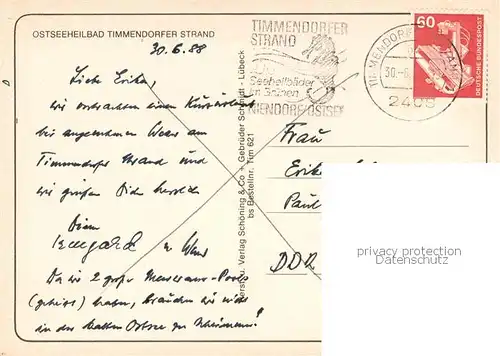 OSTSEEHEILBAD TIMMENDORFER STRAND
30.6.88
Liebe Erika,
wir verbrachten einen Kurzurlaub
bei angenehmen Wetter am
Timmendorfer Strand und
wir grüßen Dich herzlich
Deine
Irmgard u.
Da wir 2 große Meerwasser-Pools
(geheizt) haben, brauchen wir nicht
in der kalten Ostsee zu schwimmen!
Verlag Schöning & Co + Gebrüder Schmidt, Lübeck
Bestellnr. Tim 621
TIMMENDORFER
STRAND
Seeheilbäder
im Grünen
NIENDORF/OSTSEE
30.-6.
2408
60
DEUTSCHE BUNDESPOST
Frau
Paul
DDR
privacy protection
Datenschutz